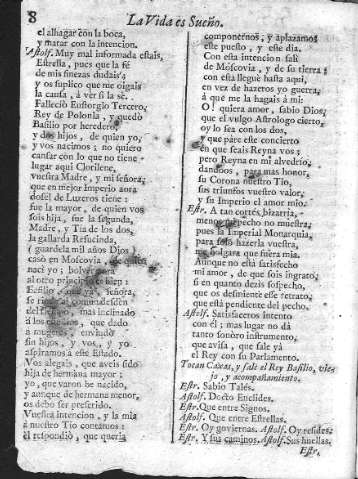 8 La Vida es Sueño.
el alhagar con la boca,
y matar con la intencion.
Astolf. Muy mal informada estais,
Estrella, pues que la fé
de mis finezas dudais,
y os suplico que me oigais
la causa, à ver si la sé.
Falleciò Eustorgio Tercero,
Rey de Polonia, y quedò
Basilio por heredero,
y dos hijos, de quien yo,
y vos nacimos; no quiero
cansar con lo que no tiene
lugar aqui Clorilene,
vuestra Madre, y mi señora,
que en mejor imperio aora
dosèl de Luzeros tiene:
fue la mayor, de quien vos
sois hija, fue la segunda,
Madre, y Tia de los dos,
la gallarda Resucinda,
( guardela mil años Dios )
casò en Moscovia
nacì yo; bolver
al otro principio es bien:
Basilio señora,
se rinde
del tiempo, mas inclinado
à los que dado
à mugeres, enviudò
sin hijos, y vos, y yo
aspiramos à este Estado.
Vos alegais, que aveis sido
hija de hermana mayor:
yo, que varon he nacido,
y aunque de hermana menor,
os debo ser preferido.
Vuestra intencion, y la mia
à nuestro Tio contamos:
èl respondiò, que queria
componernos, y aplazamos
este puesto, y este dia.
Con esta intencion salì
de Moscovia, y de su tierra;
con esta lleguè hasta aqui,
en vez de hazeros yo guerra,
à que me la hagais à mi:
O! quiera amor, sabio Dios,
que el vulgo Astrologo cierto,
oy lo sea con los dos,
y que pare este concierto
en que seais Reyna vos;
pero Reyna en mi alvedrio,
dandoos, para mas honor,
su Corona nuestro Tio,
sus triunfos vuestro valor,
y su Imperio el amor mio.
Estr. A tan cortès bizarria,
menos pecho no muestra,
pues la Imperial Monarquia,
para solo hazerla vuestra,
me holgara que fuera mia.
Aunque no està satisfecho
mi amor, de que sois ingrato,
si en quanto dezis sospecho,
que os desmiente esse retrato,
que està pendiente del pecho.
Astolf. Satisfaceros intento
con èl; mas lugar no dà
tanto sonòro instrumento,
que avisa, que sale yà
el Rey con su Parlamento.
Tocan Caxas, y sale el Rey Basilio, viejo, y acompañamiento.
Estr. Sabio Talés.
Astolf. Docto Euclides.
Estr. Que entre Signos.
Astolf. Que entre Estrellas.
Estr. Oy goviernas. Astolf. Oy resides.
Estr. Y sus caminos. Astolf. Sus huellas.
Estr.